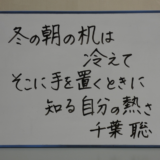 冬の朝の机は
冷えて
そこに手を置くときに
知る自分の熱さ
千葉 聡